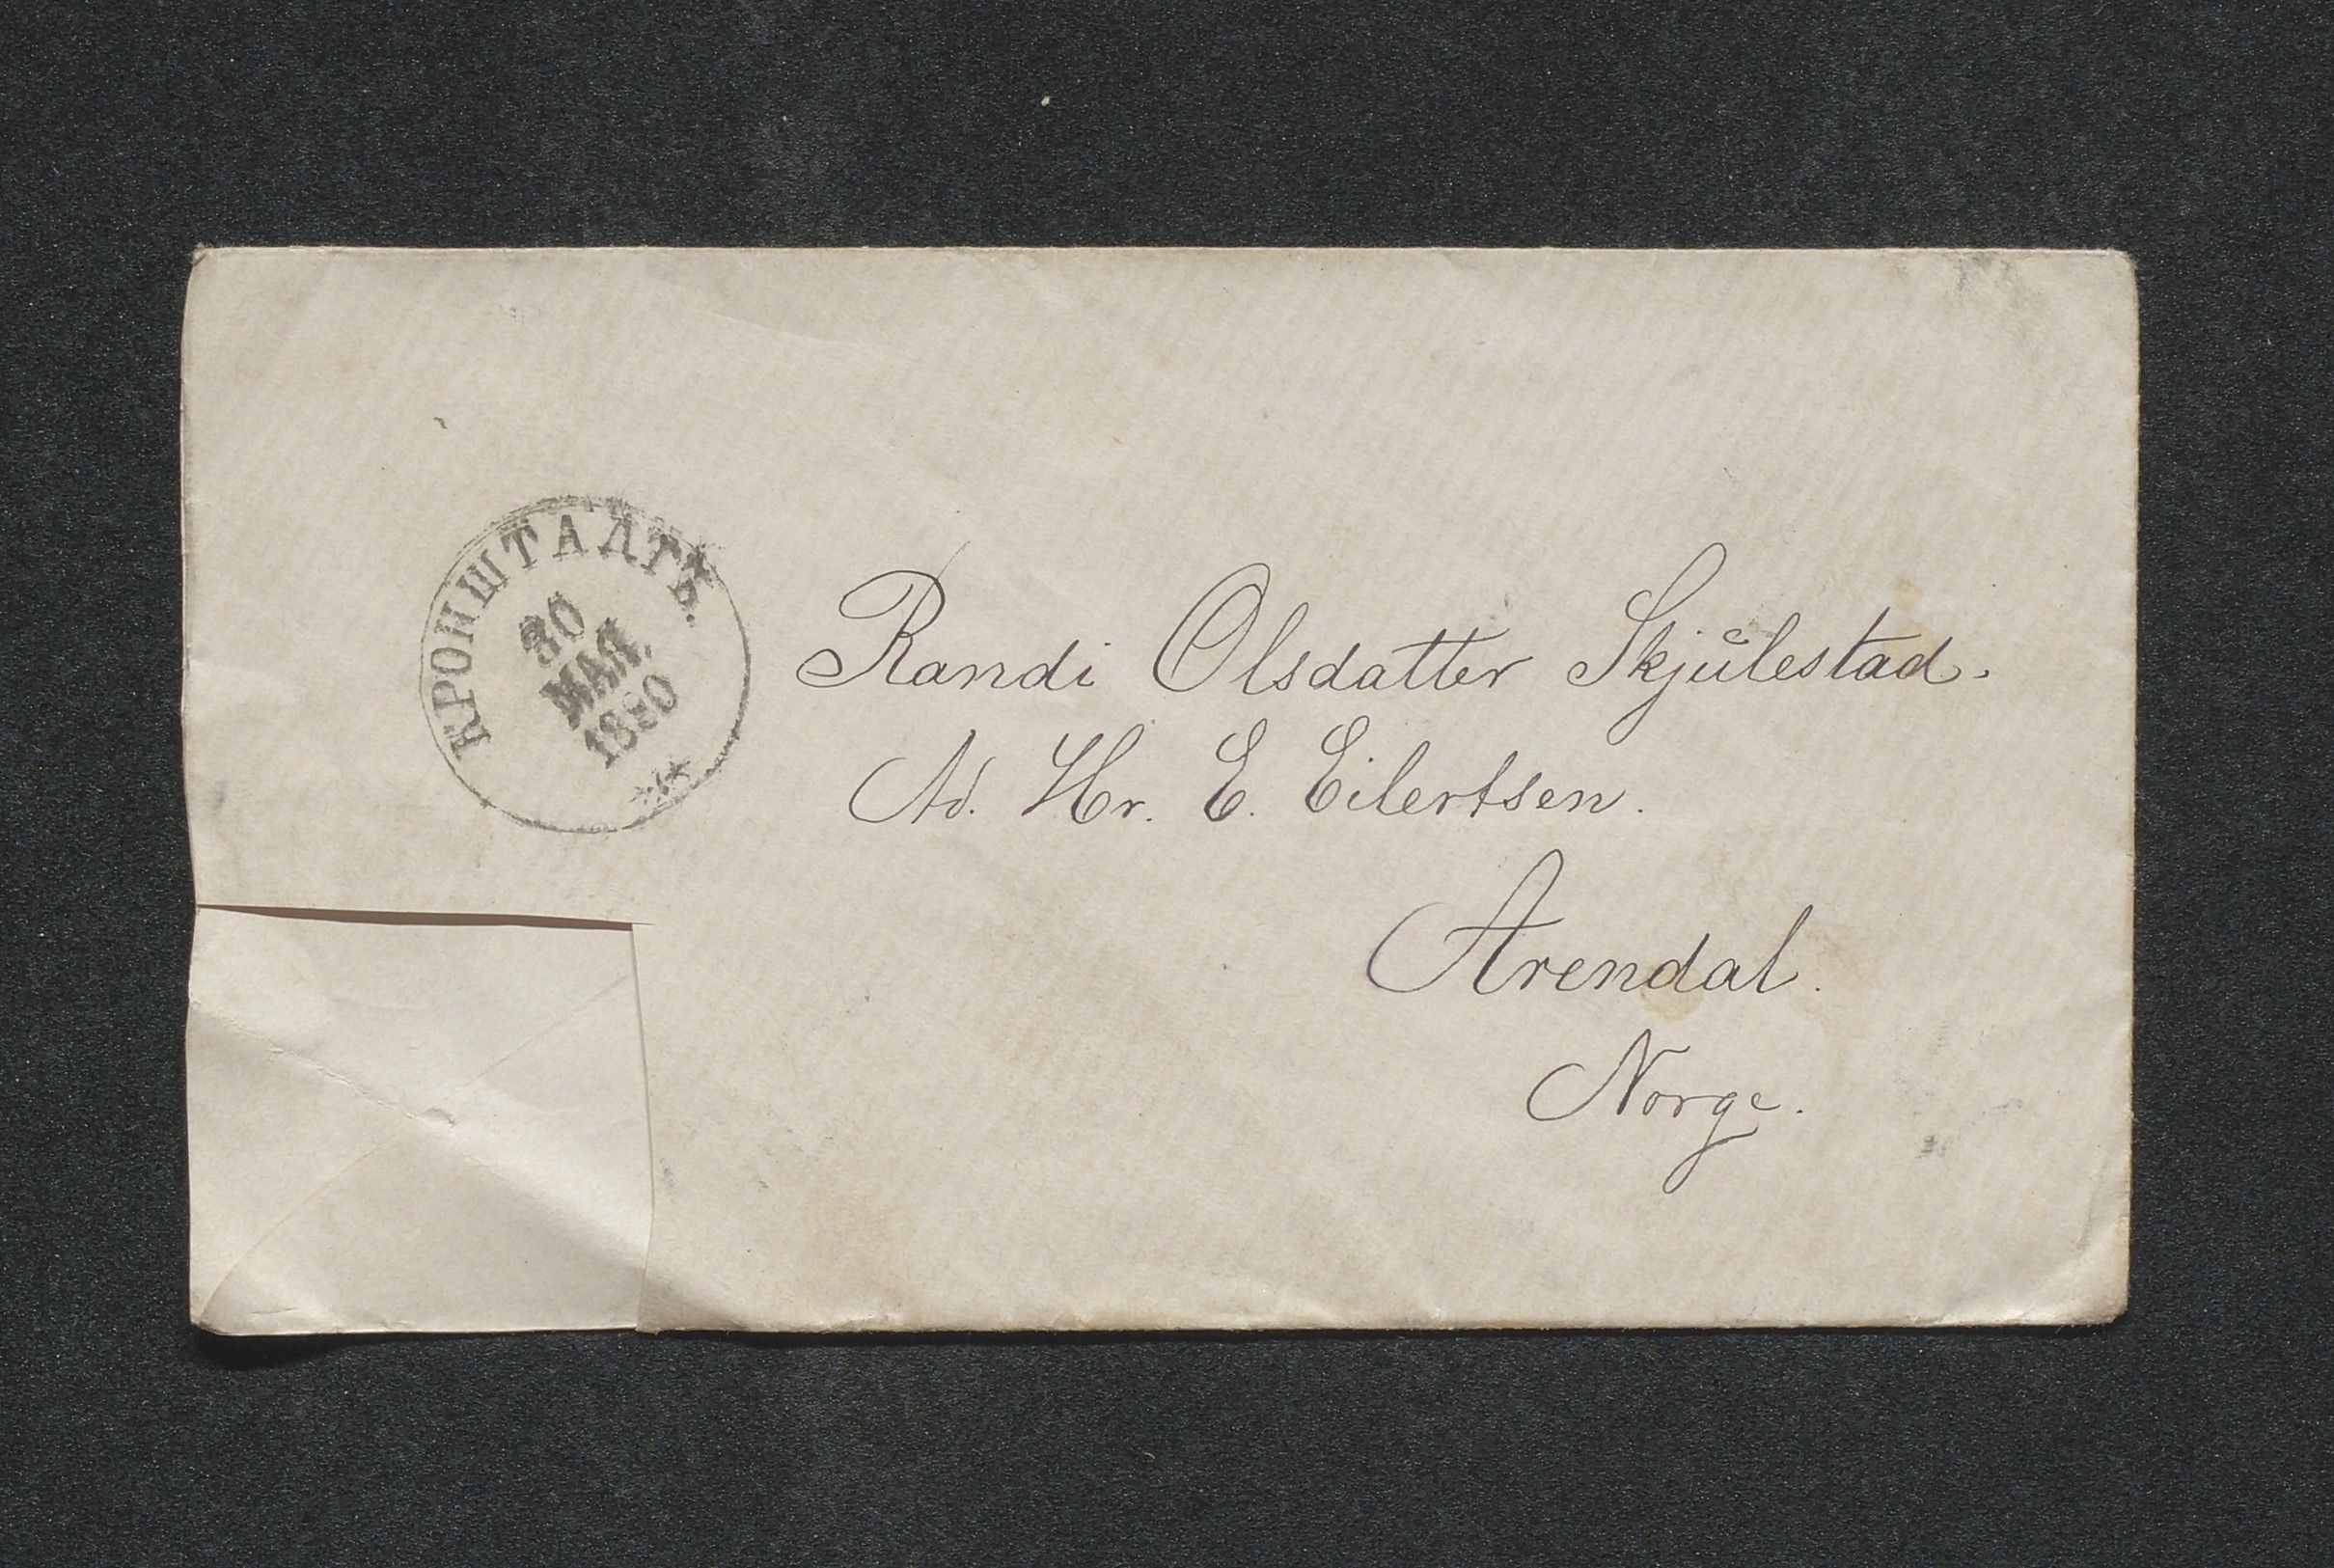 КРОНШТАДТЪ.
30
МАЯ.
1880
Randi Olsdatter Skjulestad.
Ad. Hr. E. Eilertsen.
Arendal.
Norge.